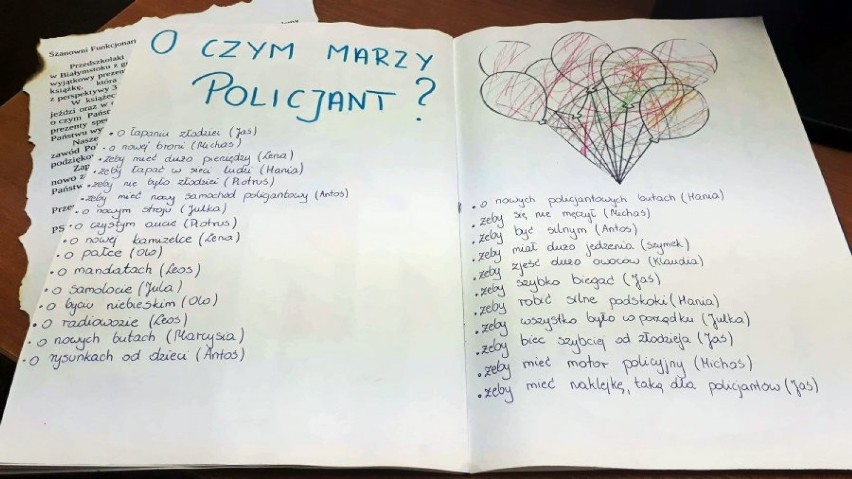 Szanowni Funkcjonari
Przedszkolaki
w Białymstoku z
wyjątkowy prezen
książkę, która
z perspektywy 3
W książec
jeździ oraz w
o czym Państ
prezenty spe
Państwu wy
Nasze
zawód Po
podzięko
Zap
nowo z
Państw
Prze
PS
O CZYM MARZY
POLICJANT?
• o łapaniu złodziei (Jaś)
• o nowej broni (Michaś)
• żeby mieć dużo pieniędzy (Lena)
• żeby łapać w sieci ludzi (Hania)
• żeby nie było złodziei (Piotruś)
• żeby mieć nowy samochód policjantowy (Antoś)
• o nowym stroju (Julka)
• o czystym aucie (Piotruś)
• o nowej kamizelce (Lena)
• o pałce (Olo)
• o mandatach (Leoś)
• o samolocie (Jula)
• o byciu niebieskim (Olo)
• o radiowozie (Leoś)
• o nowych butach (Marysia)
• o rysunkach od dzieci (Antoś)
• o nowych policjantowych butach (Hania)
• żeby się nie męczył (Michaś)
• żeby być silnym (Antoś)
• żeby miał dużo jedzenia (Szymek)
• żeby zjeść dużo owoców (Klaudia)
• żeby szybko biegać (Jaś)
• żeby robić silne podskoki (Hania)
• żeby wszystko było w porządku (Julka)
• żeby biec szybciej od złodzieja (Jaś)
• żeby mieć motor policyjny (Michaś)
• żeby mieć naklejkę, taką dla policjantów (Jaś)